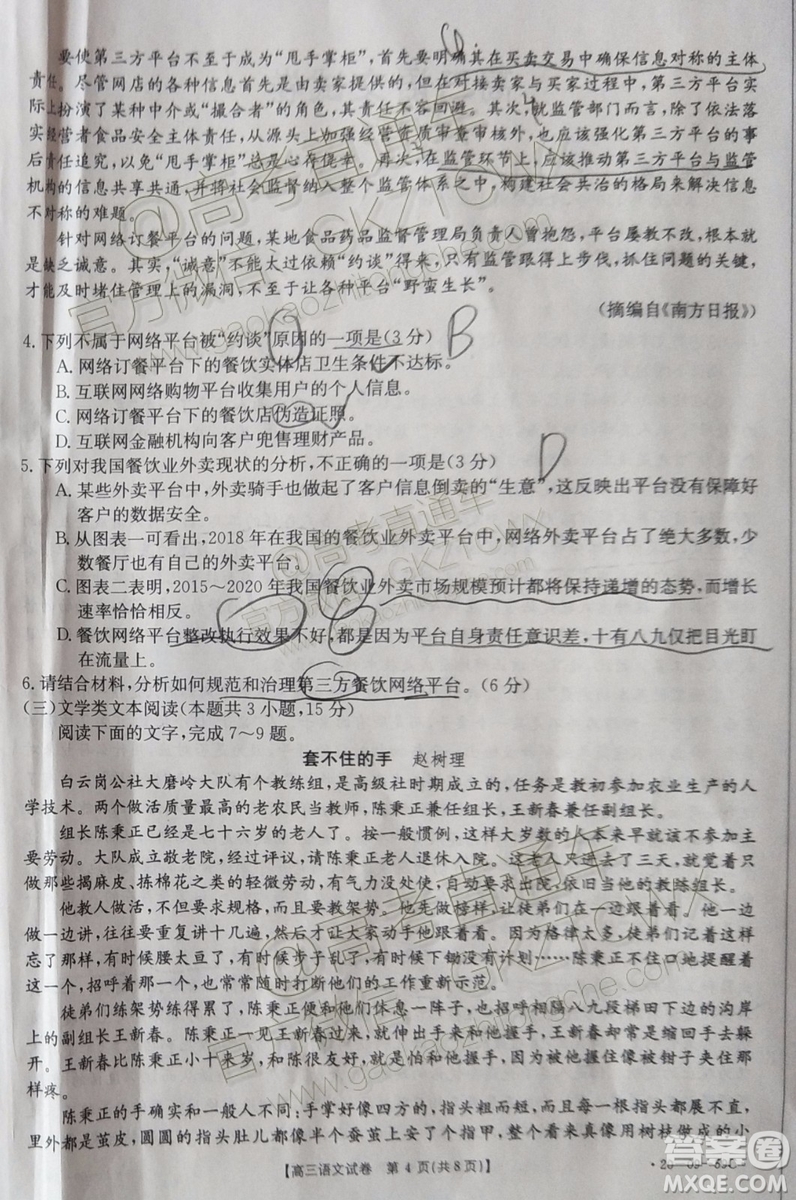 要使第三方平台不至于成为“甩手掌柜”,首先要明确其在买卖交易中确保信息对称的主体
责任。尽管网店的各种信息首先是由卖家提供的,但在对接卖家与买家过程中,第三方平台实
际上扮演了某种中介或“撮合者”的角色,其责任不容回避。其次,就监管部门而言,除了依法落
实经营者食品安全主体责任,从源头上加强对经营资质审查审核外,也应该强化第三方平台的事
后责任追究,以免“甩手掌柜”总是心存侥幸。再次,在监管环节上,应该推动第三方平台与监管
机构的信息共享共通,并将社会监督纳入整个监管体系之中,构建社会共治的格局来解决信息
不对称的难题。
针对网络订餐平台的问题,某地食品药品监督管理局负责人曾抱怨,平台屡教不改,根本就
是缺乏诚意。其实,“诚意”不能太过依赖“约谈”得来,只有监管跟上步伐,抓住问题的关键,
才能及时堵住管理上的漏洞,不至于让各种平台“野蛮生长”。
(摘编自《南方日报》)
4.下列不属于网络平台被“约谈”原因的一项是(3分) B
A.网络订餐平台下的餐饮实体店卫生条件不达标。
B.互联网网络购物平台收集用户的个人信息。
C.网络订餐平台下的餐饮店伪造证照。
D.互联网金融机构向客户兜售理财产品。
5.下列对我国餐饮业外卖现状的分析,不正确的一项是(3分) D
A.某些外卖平台中,外卖骑手做起了客户信息倒卖的“生意”,这反映出平台没有保障好
客户的数据安全。
B.从图表一可看出,2018年在我国的餐饮业外卖平台中,网络外卖平台占了绝大多数,少
数餐厅也有自己的外卖平台。
C.图表二表明,2015~2020年我国餐饮业外卖市场规模预计都将保持递增的态势,而增长
速率恰恰相反。
D.餐饮网络平台整改执行效果不好,都是因为平台自身责任意识差,十有八九仅把目光盯
在流量上。
6.请结合材料,分析如何规范和治理第三方餐饮网络平台。(6分)
(三)文学类文本阅读(本题共3小题,15分)
阅读下面的文字,完成7~9题。
套不住的手 赵树理
白云岗公社大磨岭大队有个教练组,是高级社时期成立的,任务是教初参加农业生产的人
学技术。两个做活质量最高的老农民当教师,陈秉正当组长,王新春当副组长。
组长陈秉正已经是七十六岁的老人了。按一般惯例,这样大岁数的人本来早就可以不参加主
要劳动。大队成立敬老院,经过评议,请陈秉正老人退休入院。这老人只进去了三天,就觉
做那些揭麻皮、拣棉花之类的轻微劳动,有气力没处使,又要求出院参加了他的教练组。
他教人做活,不但要求规格,而且要教架势。他先在一边做着样子,让徒弟们在一边跟着看。他
做一边讲,往往要重复讲好几遍,讲过了才让大家动手跟着他学。因为格律太多,徒弟们
忘了那个,有时候腰太直了,有时候步子乱了,有时候下锄没有计划……陈秉正不住口地提醒着
一个,招呼着那一个,也常常随时打断他们的工作重新示范。
徒弟们练架势练得累了,陈秉正便让他们休息一阵子,也招呼相隔八九段梯田下边的沟岸
上的副组长王新春。陈秉正一见王新春就伸出手来和他握手,王新春却常是缩回手去躲
开。王新春比陈秉正小十来岁,和陈很友好,就是怕和他握手,因为一被他握住像被钳子夹住那
样疼。
陈秉正的手确实和一般人不同:手掌好像四方的,指头粗而短,而且每一根指头都展不直,
里外都是茧皮,圆圆的指头肚儿都像半个蚕茧上安了个指甲,整个看来真像用树枝做成的小
【高三语文试卷 第4页(共8页)】
@高考直通车
官方微信:GKZTCWX
官方网站:www.gaokaozhitongche.com
答案圈
MXQE.COM